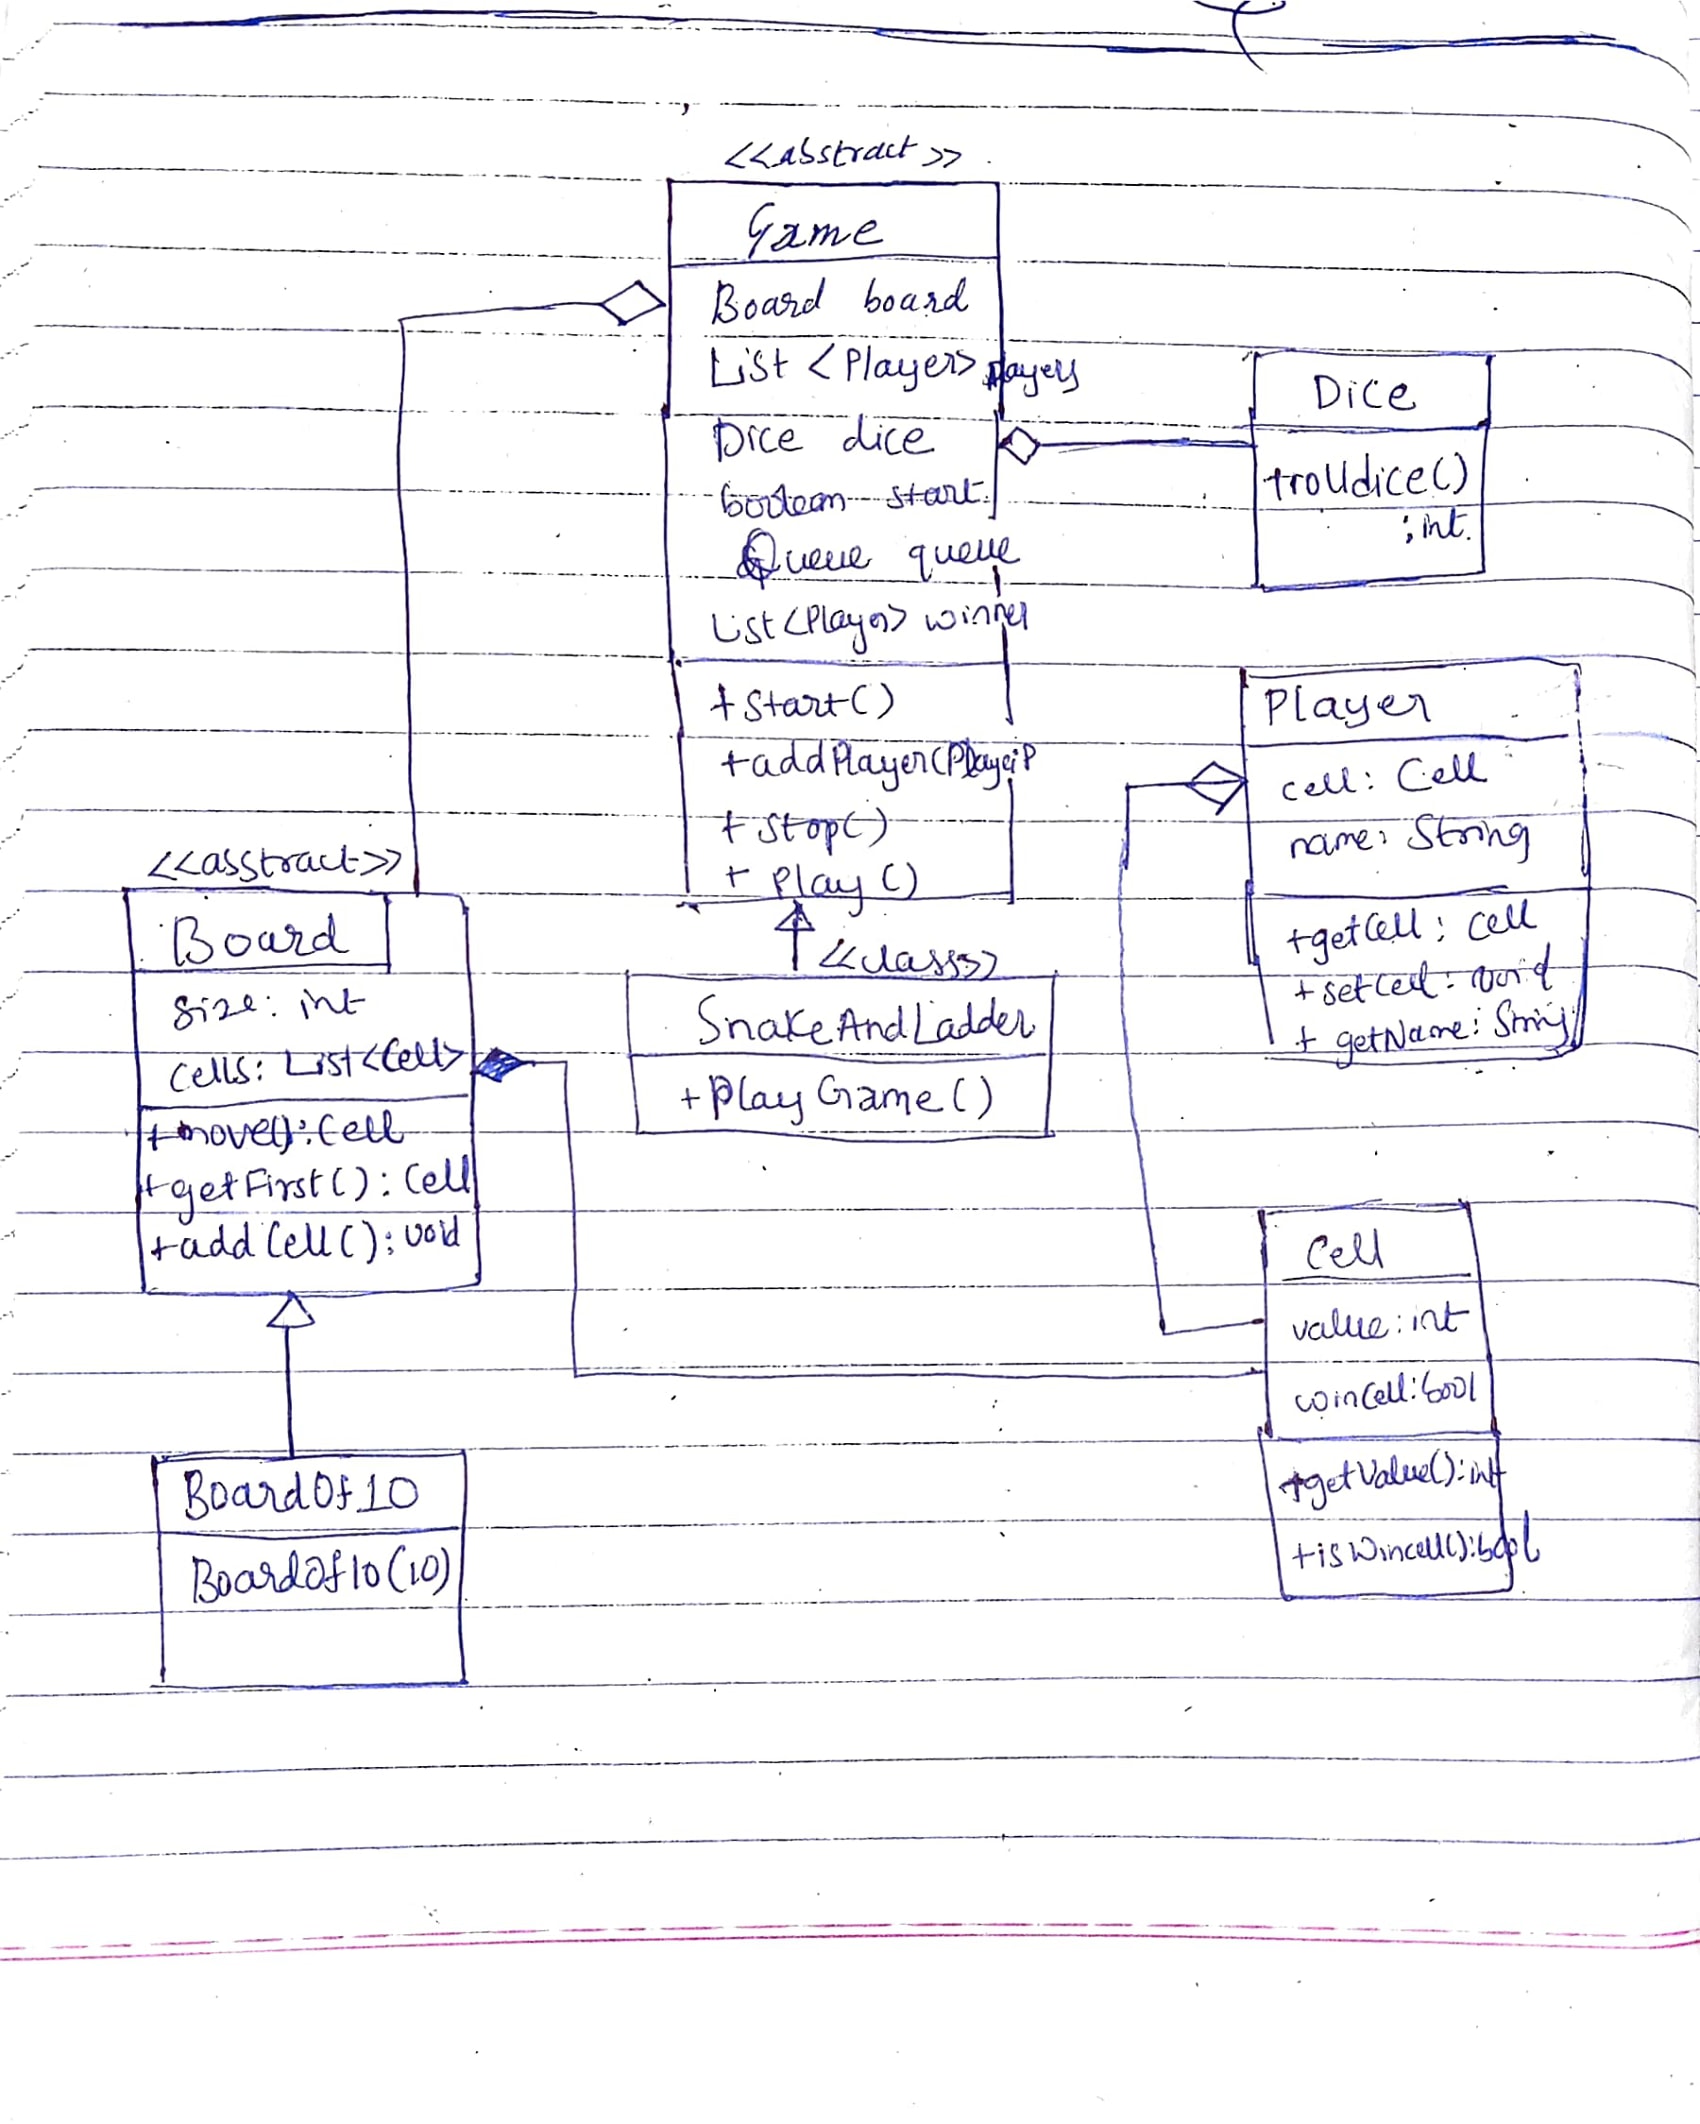 <<abstract>>
Game
Board board
List <Player> players
Dice dice
boolean start
Queue queue
List<Player> winner
+ Start()
+addPlayer(Player P
+ Stop()
+ Play()
Dice
+rolldice()
: int.
Player
cell: Cell
name: String
+getCell: Cell
+ setCell: void
+ getName: String
<<asstract>>
Board
size: int
cells: List<Cell>
+move(): Cell
+getFirst(): Cell
+add Cell(): void
<<class>>
SnakeAndLadder
+PlayGame()
Cell
value: int
winCell: bool
+getValue(): int
+isWincell(): bool
BoardOf10
BoardOf10(10)